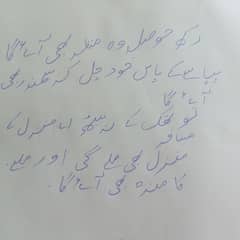 رکھ حوصلہ وہ منظر بھی آئے گا
پیاسے کے پاس خود چل کہ سمندر بھی
آئے گا
تو تھک کے نہ بیٹھ اے منزل کے
مسافر
منزل بھی ملے گی اور ملنے
کا مزہ بھی آئے گا.